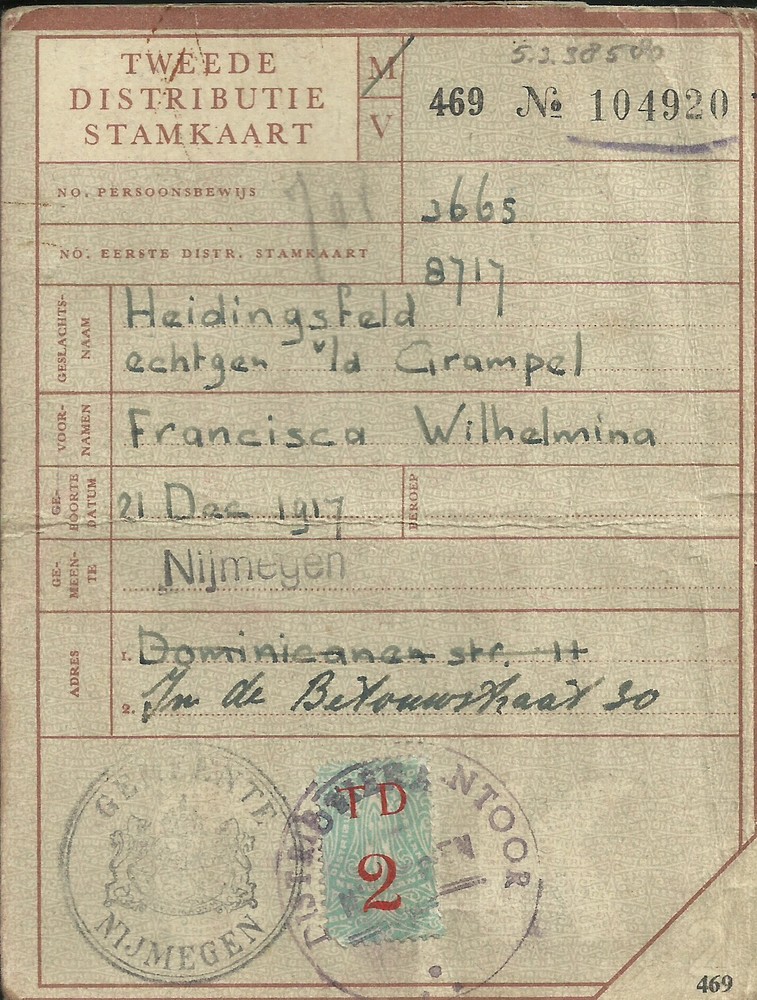 TWEEDE
DISTRIBUTIE
STAMKAART
M
V
469 № 104920
NO. PERSOONSBEWIJS
3665
NO. EERSTE DISTR. STAMKAART
8717
GESLACHTS-
NAAM
Heidingsfeld
echtgen v/d Grampel
VOOR-
NAMEN
Francisca Wilhelmina
GE-
BOORTE
DATUM
21 Dec 1917
BEROEP
GE-
MEEN-
TE
Nijmegen
ADRES
1. Dominicanen str. 11
2. In de Betouwstraat 30
GEMEENTE
NIJMEGEN
DISTRIBUTIEKANTOOR
TD
2
469